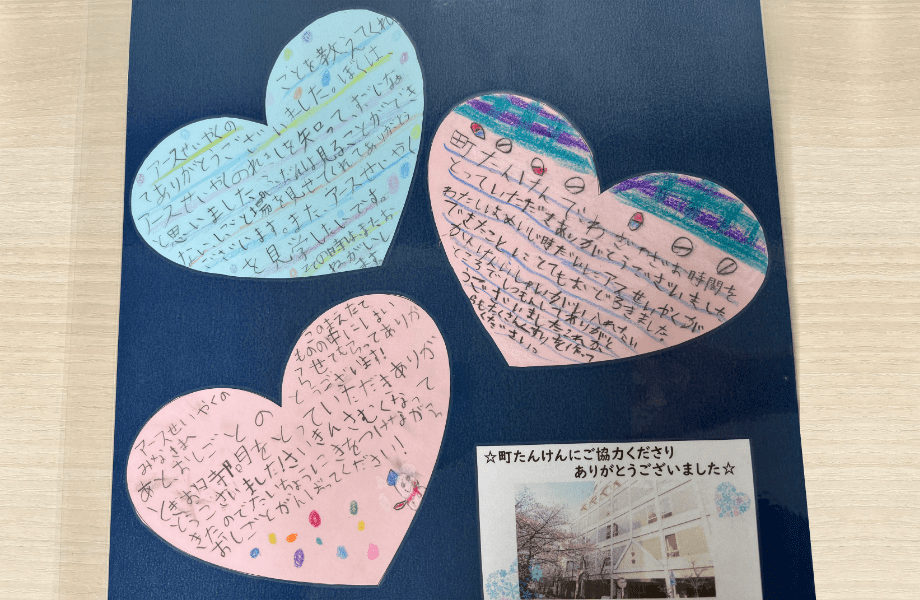 ことを教えてくれ
アースせいやくの
てありがとうござ いました。ぼくは、
アースせいやくのれいしを知ってすごいなぁ
と思いました。
を見せてくれてありがとう
ございます。また、アースせいやく
を見学したいです。
その時はまたお
ねがいし
ます。
町たんけんでわざわざお時間を
とっていただきありがとうございました
わたしはめいじ時だいにアースせいやくが
できたことにとてもおどろきました。
ところでしつもんしてありがと
うございました。これか
らもたくさんくすりを作って
ください。
このまえたて
ものの中にはい
らせてもらってありが
とうございます!
アースせいやくの
みなさまへ
あとおしごとの
ときお時間をとっていただきありが
とうございました!さいきんさむくなって
きたのでたいちょうにきをつけながら
おしごとがんばってください!
☆町たんけんにご協力くださり
ありがとうございました☆